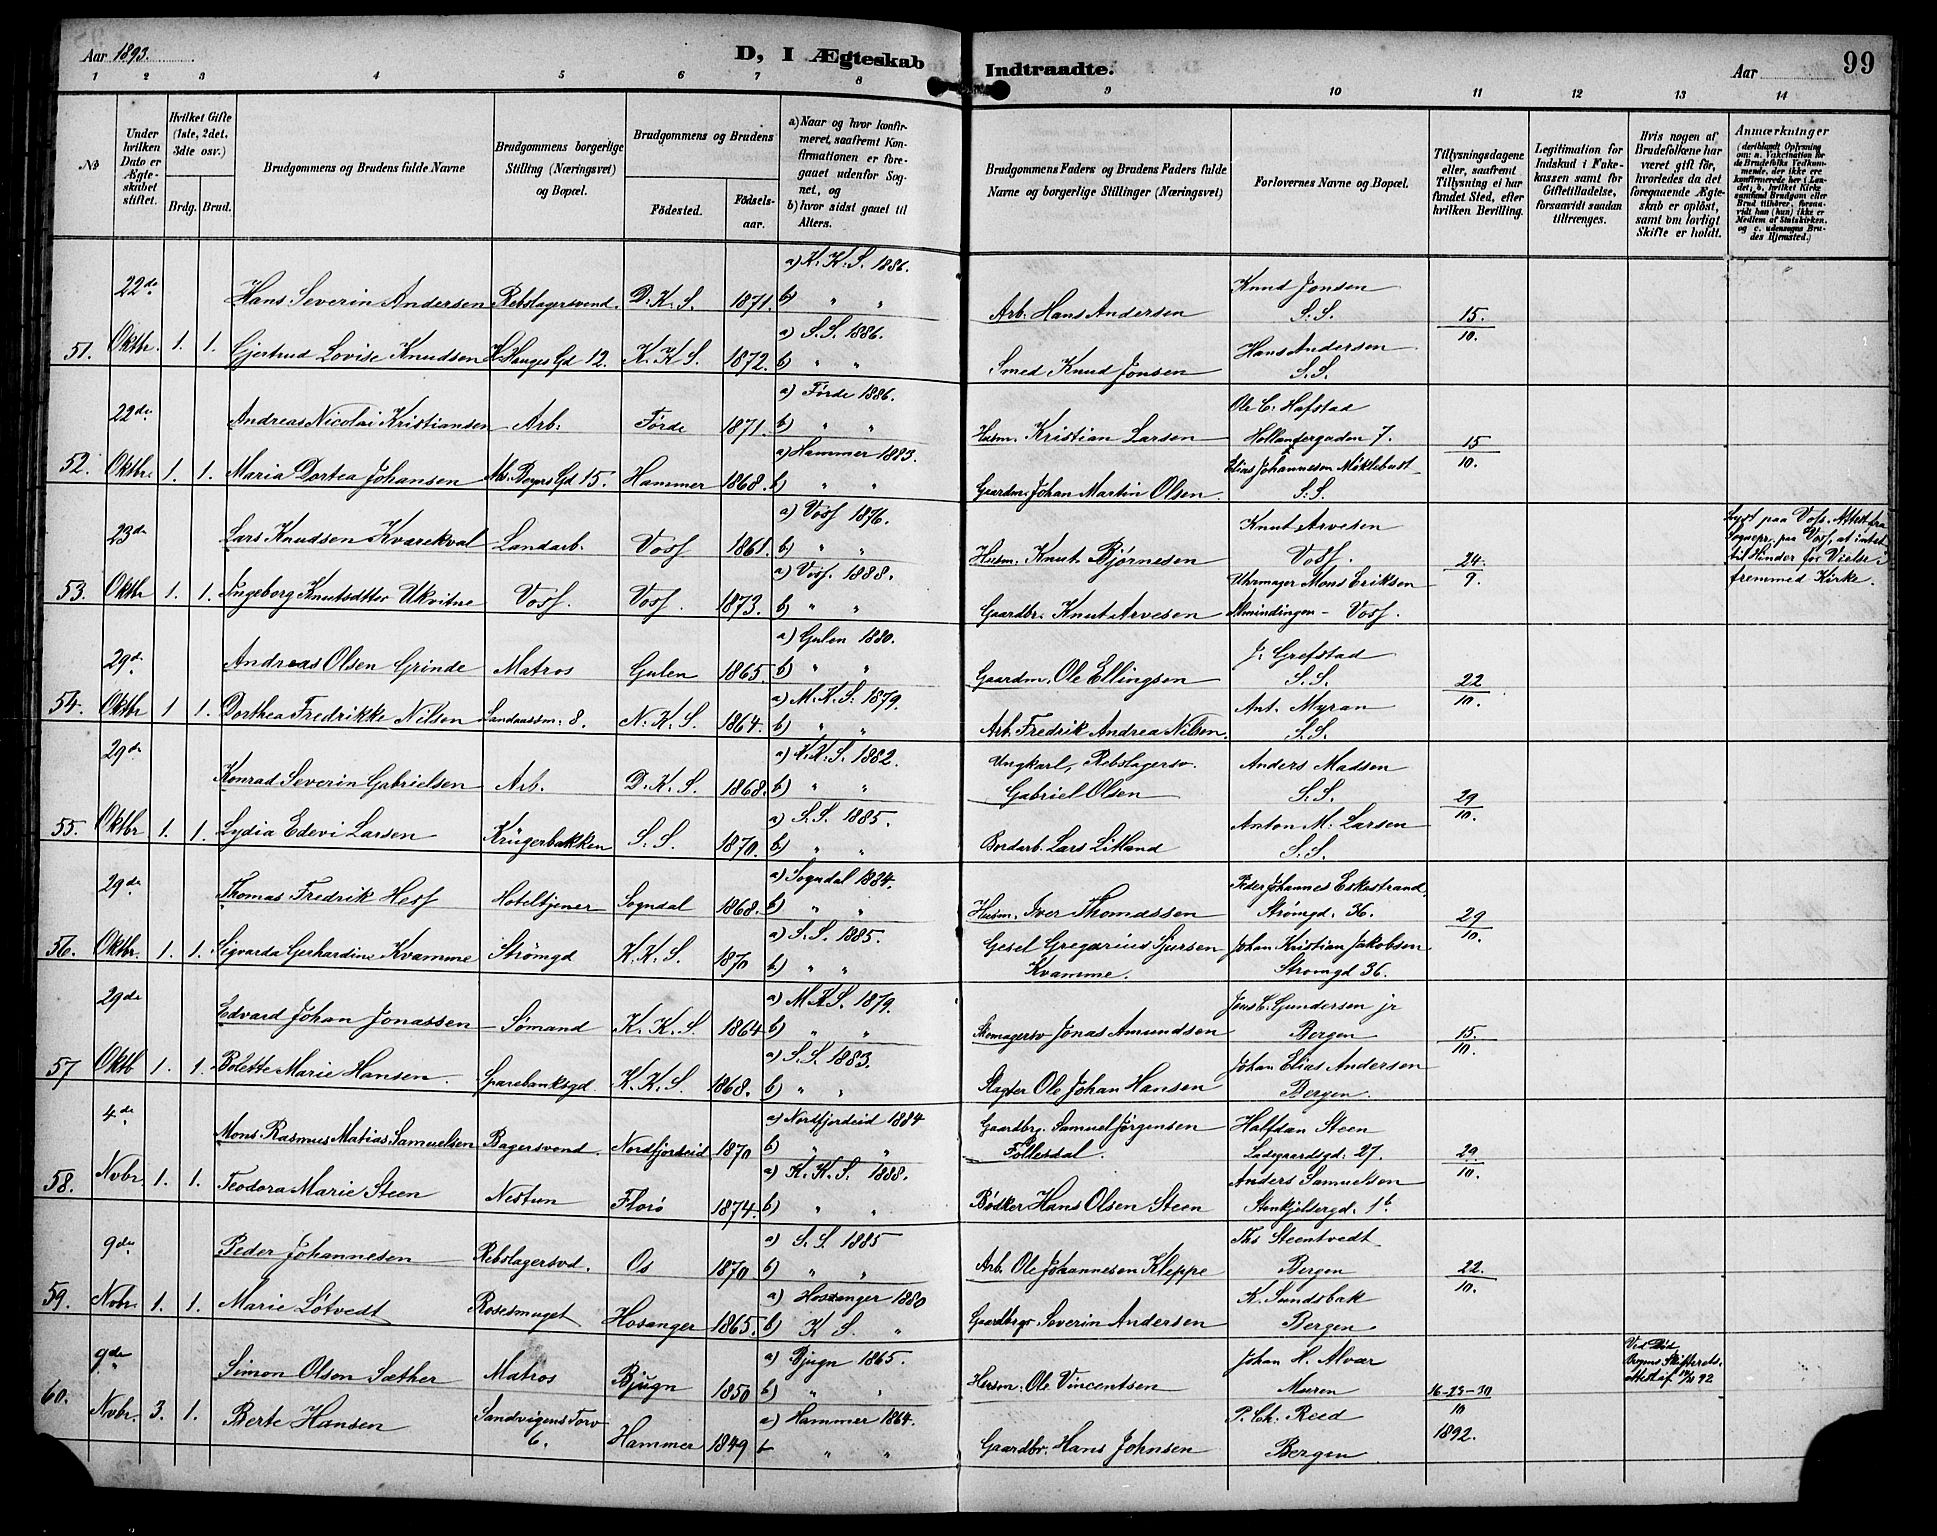 Aar 1893.
D, I Ægteskab Indtraadte.
Aar
99
1 2 3 4 5 6 7 8 9 10 11 12 13 14
No
Under hvilken Dato er Ægteskabet stiftet.
Hvilket Gifte (1ste, 2det, 3die osv.)
Brdg. Brud.
Brudgommens og Brudens fulde Navne
Brudgommens borgerlige Stilling (Næringsvei) og Bopæl.
Brudgommens og Brudens
Födested.
Födselsaar.
a) Naar og hvor konfirmeret, saafremt Konfirmationen er foregaaet udenfor Sognet, og
b) hvor sidst gaaet til Alters.
Brudgommens Faders og Brudens Faders fulde Navne og borgerlige Stillinger (Næringsvei)
Forlovernes Navne og Bopæl.
Tillysningsdagene eller, saafremt Tillysning ei har fundet Sted, efter hvilken Bevilling.
Legitimation for Indskud i Enkekassen samt for Giftetilladelse, forsaavidt saadan tiltrænges.
Hvis nogen af Brudefolkene har været gift för, hvorledes da det foregaaende Ægteskab er oplöst, samt om lovligt Skifte er holdt.
Anmærkninger (deriblandt Oplysning om: a. Vakcination for de Brudefolks Vedkommende, der ikke ere konfirmerede her i Landet; b. hvilket Kirkesamfund Brudgom eller Brud tilhörer, forsaavidt han (hun) ikke er Medlem af Statskirken, og c. udensogns Brudes Hjemsted.)
51. 22de Oktbr. 1. 1.
Hans Severin Andersen Rebslagersvend. D. K. S. 1871. a) K. K. S. 1886. b) " " Arb. Hans Andersen Knud Jonsen S. S. 15./10.
Gjertrud Lovise Knudsen H. Hauges Gd 12. K. K. S. 1872. a) S. S. 1886. b) " " Smed Knud Jonsen Hans Andersen S. S.
52. 22de Oktbr. 1. 1.
Andreas Nicolai Kristiansen Arb. Førde 1871. a) Førde 1886. b) " " Husm. Kristian Larsen Ole C. Hafstad Hollendergaden 7. 15/10.
Maria Dortea Johansen Ms. Beyers Gd 15. Hammer 1868. a) Hammer 1883. b) " " Gaardm. Johan Martin Olsen. Elias Johannesen Møklebust S. S.
53. 23de Oktbr 1. 1.
Lars Knudsen Kvarekval Landarb. Voss 1861. a) Voss 1876. b) " " Husm. Knut Bjørnesen Knut Arvesen Voss. 24./9.
Lyst paa Voss. Attest fra Sognepr. paa Voss, at intet til Hinder for Vielse i fremmed Kirke.
Ingeborg Knutsdtter Ukvitne Voss. Voss. 1873. a) Voss. 1888. b) " " Gaardbr. Knut Arvesen Uhrmager Mons Eriksen Almindingen - Voss.
54. 29de Oktbr 1 1.
Andreas Olsen Grinde Matros Gulen 1865 a) Gulen 1880. b) " " Gaardm. Ole Ellingsen J. Grefstad S. S. 22/10.
Dorthea Fredrikke Nilsen Landaassm. 8. N. K. S. 1864. a) M. K. S. 1879. b) " " Arb. Fredrik Andrea Nilsen. Ant. Myran S. S.
55. 29de Oktbr 1. 1.
Konrad Severin Gabrielsen Arb. D. K. S. 1868. a) K. K. S. 1882. b) " " Ungkarl, Rebslagersv. Gabriel Olsen Anders Madsen S. S. 29/10.
Lydia Edevi Larsen Krügerbakken S. S. 1870. a) S. S. 1885. b) " " Bordarb. Lars Litland Anton M. Larsen S. S.
56. 29de Oktbr. 1. 1.
Thomas Fredrik Hess Hoteltjener Sogndal 1868. a) Sogndal 1884. b) " " Husm. Iver Thomassen Peder Johannes Eskestrand Strømgd. 36. 29/10.
Sigvarda Gerhardine Kvamme Strømgd K. K. S. 1870 a) S. S. 1885. b) " " Gesel Gregarius Sjursen Kvamme. Johan Kristian Jakobsen Strømgd 36.
57 29de Oktb 1. 1.
Edvard Johan Jonassen Sømand K. K. S. 1864 a) M. K. S. 1879. b) " " Skomagersv Jonas Amundsen Jens C. Gundersen jr Bergen 15./10.
Bolette Marie Hansen. Sparebanksgd. K. K. S. 1868. a) S. S. 1883. b) " " Slagter Ole Johan Hansen Johan Elias Andersen Bergen.
58. 4de Novbr 1. 1.
Mons Rasmus Matias Samuelsen Bagersvend. Nordfjordeid 1870 a) Nordfjordeid 1884 b) " " Gaardbr. Samuel Jørgensen Follesdal. Halfdan Steen Ladegaardsgd. 27. 29./10.
Teodora Marie Steen Nestun Florø 1874. a) K. K. S. 1888. b) " " Bødker Hans Olsen Steen Anders Samuelsen Stenkjeldergd. 1b
59. 9de Nvbr. 1. 1.
Peder Johannesen Rebslagersvd. Os 1870 a) S. S. 1885 b) " " Arb. Ole Johannesen Kleppe Ths Steentvedt Bergen 22./10.
Marie Løtvedt Rosesmuget Hosanger 1865. a) Hosanger 1880 b) K S. " Gaardbrgr Severin Andersen K. Sundsbak Bergen.
60. 9de Novbr. 3. 1.
Simon Olson Sæther Matros Bjugn 1850 a) Bjugn 1865. b) " " Husm. Ole Vincentsen Johan H. Alvær Muren 16-23-30/10 1892.
Ved Død Bergens Skifterets attest af 12/11 92
Berte Hansen Sandvigens Torv 6. Hammer 1849 a) Hammer 1864. b " " Gaardbr. Hans Johnsen P. Ch. Reed Bergen